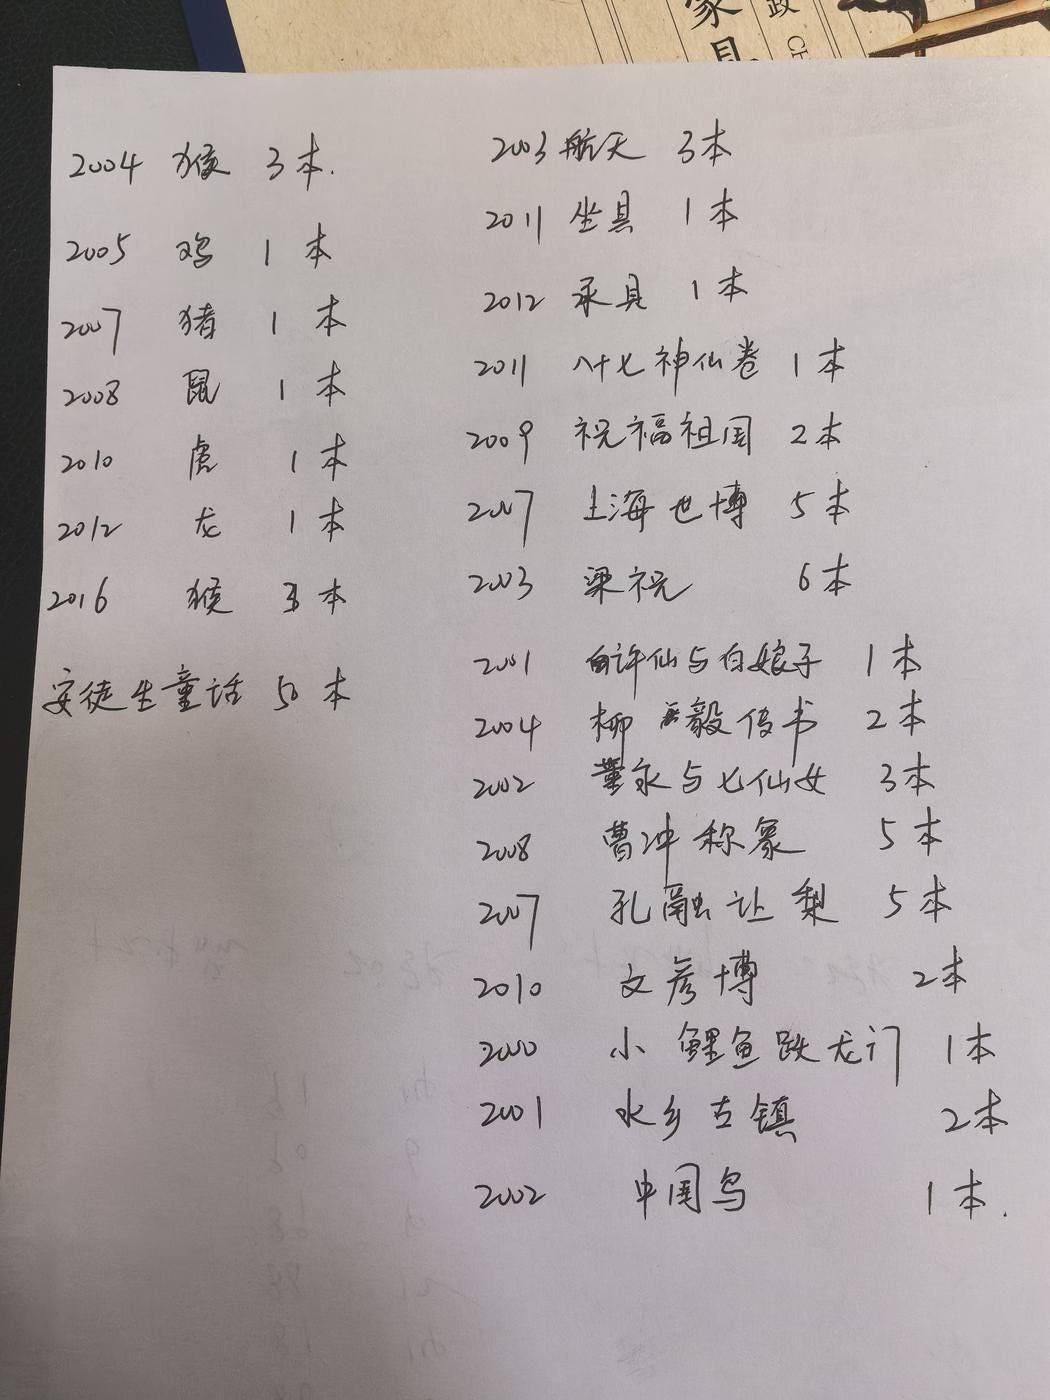 家具
政
2004 猴 3本.
2005 鸡 1本
2007 猪 1本
2008 鼠 1本
2010 虎 1本
2012 龙 1本
2016 猴 3本
安徒生童话 50本
2003 航天 3本
2011 坐具 1本
2012 承具 1本
2011 八十七神仙卷 1本
2009 祝福祖国 2本
2007 上海世博 5本
2003 梁祝 6本
2001 许仙与白娘子 1本
2004 柳毅传书 2本
2002 董永与七仙女 3本
2008 曹冲称象 5本
2007 孔融让梨 5本
2010 文彦博 2本
2000 小鲤鱼跃龙门 1本
2001 水乡古镇 2本
2002 中国鸟 1本.